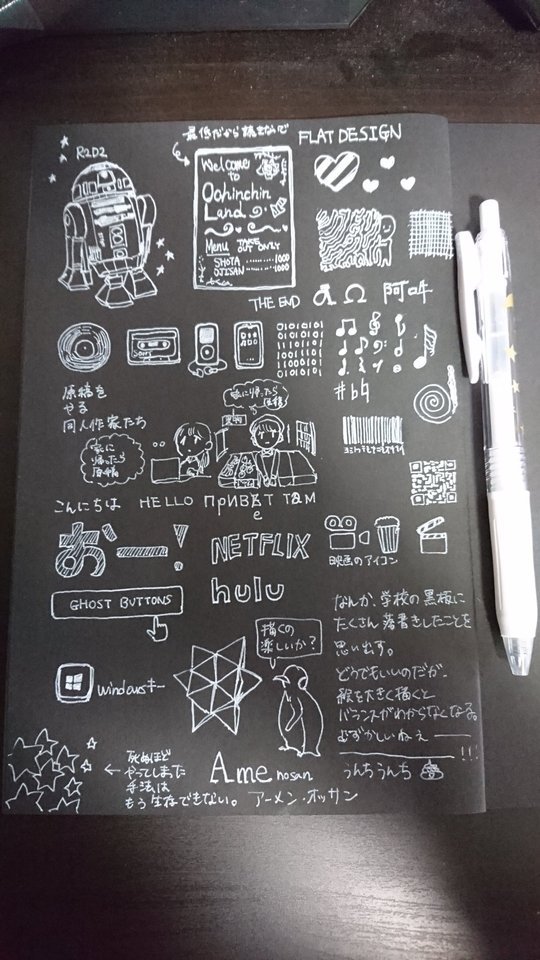 R2D2
最低だから読まないで
FLAT DESIGN
Welcome
to
Oohinchin
Land
Menu TAKE OUT ONLY
SHOTA ........ 1000
OJISAN ........ 1000
THE END
Ω
阿吽
010101
原稿を
やる
同人作家たち
家に
帰ったら
原稿
家に帰ったら
原稿
#♭♮
こんにちは HELLO ПРИВЕТ ТАМ
е
お゛ー!
NETFLIX
hulu
映画のアイコン
GHOST BUTTONS
windowsキー
描くの
楽しいか?
なんか、学校の黒板に
たくさん落書きしたことを
思い出す。
どうでもいいのだが、
絵を大きく描くと
バランスがわからなくなる。
むずかしいねぇ――
――!!!
うんちうんち
←死ぬほど
やってしまった
手法は
もう生存できない。
Ame nosan
アーメン・オッサン